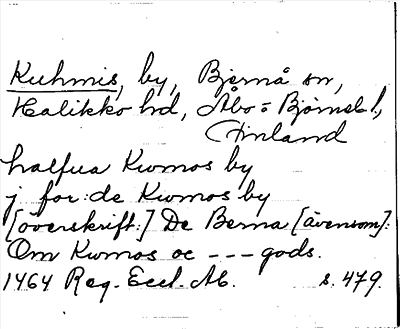 Kuhmis, by, Bjernå sn,
Halikko hd, Åbo=Björneb. l.,
Finland
halfua Kwmos by
j for:de Kwmos by
[överskrift:] De Berna [ävensom]:
Om Kwmos oc --- gods.
1464 Reg. Eccl. Ab. s. 479.